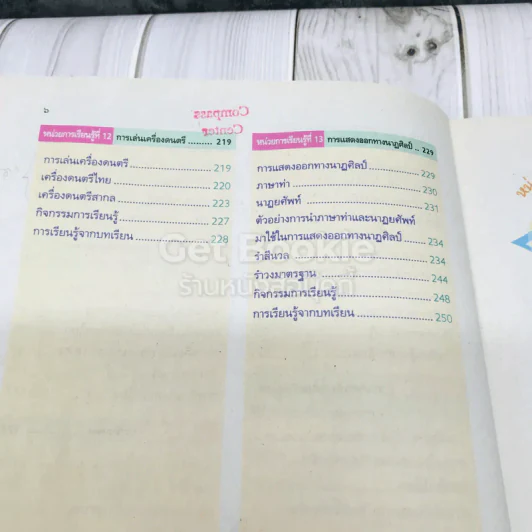 Compass
Center
หน่วยการเรียนรู้ที่ 12 การเล่นเครื่องดนตรี ......... 219
การเล่นเครื่องดนตรี ........ 219
เครื่องดนตรีไทย ........ 220
เครื่องดนตรีสากล ........ 223
กิจกรรมการเรียนรู้ ........ 227
การเรียนรู้จากบทเรียน ........ 228
หน่วยการเรียนรู้ที่ 13 การแสดงออกทางนาฏศิลป์ .. 229
การแสดงออกทางนาฏศิลป์ ........ 229
ภาษาท่า ........ 230
นาฏยศัพท์ ........ 231
ตัวอย่างการนำภาษาท่าและนาฏยศัพท์
มาใช้ในการแสดงออกทางนาฏศิลป์ ...... 234
รำสีนวล ........ 234
รำวงมาตรฐาน ........ 244
กิจกรรมการเรียนรู้ ........ 248
การเรียนรู้จากบทเรียน ........ 250
Get Bookie
ร้านหนังสือบุ๊คกี้